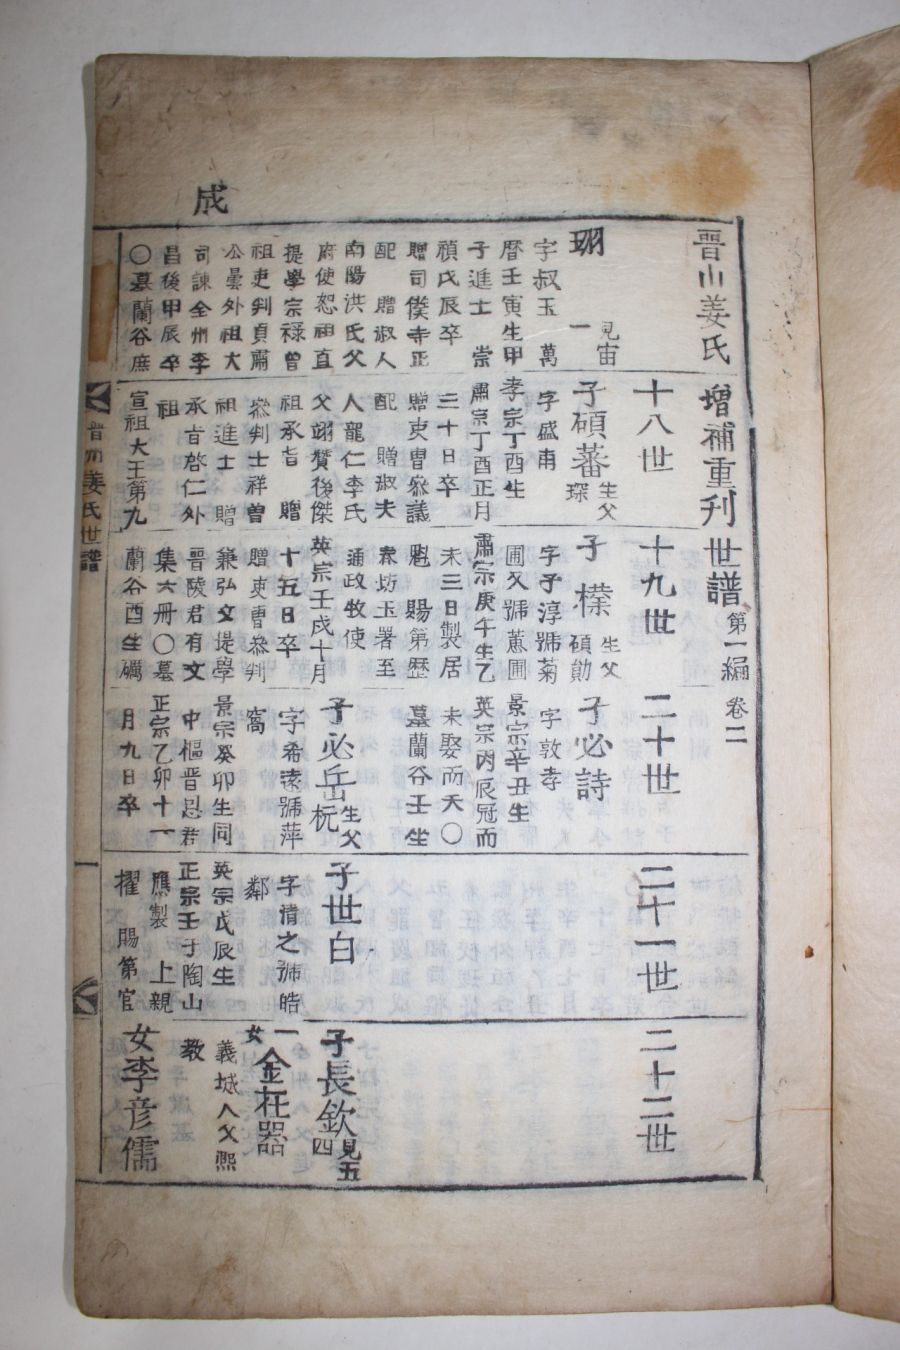 成
晋山姜氏
增補重刊世譜 第一編 卷二
珝 見宙一
字叔玉 萬
曆壬寅生甲
子進士 崇
禎戊辰卒
贈司僕寺正
配 贈淑人
南陽洪氏父
府使恕祖直
提學宗祿曾
祖吏判貞肅
公曇外祖大
司諫全州李
昌後甲辰卒
〇墓蘭谷庶
十八世
子碩蕃 生父琛
字盛甫
孝宗丁酉生
肅宗丁酉正月
三十日卒
贈吏曹參議
配 贈淑夫
人龍仁李氏
父翊贊後傑
祖承旨 贈
參判士祥曾
祖進士 贈
承旨啓仁外
祖
宣祖大王第九
十九世
子樸 生父碩勛
字子淳號菊
圃又號蔥圃
肅宗庚午生乙
未三日製居
魁 賜第歷
兼坊玉署至
通政牧使
英宗壬戌十月
十五日卒
贈吏曹參判
兼弘文提學
晉陵君有文
集六冊〇墓
蘭谷酉坐礪
二十世
子必詩
字敦孝
景宗辛丑生
英宗丙辰冠而
未娶而夭〇
墓蘭谷壬坐
子必岳 生父杬
字希遠號萍
窩
景宗癸卯生同
中樞晋恩君
正宗乙卯十一
月九日卒
二十一世
子世白
字清之號皓
鄰
英宗戊辰生
正宗壬子陶山
應製 上親
擢 賜第官
二十二世
子長欽 見五四
一女金在器
義城人父熙
教
女李彦儒
晋州姜氏世譜
一